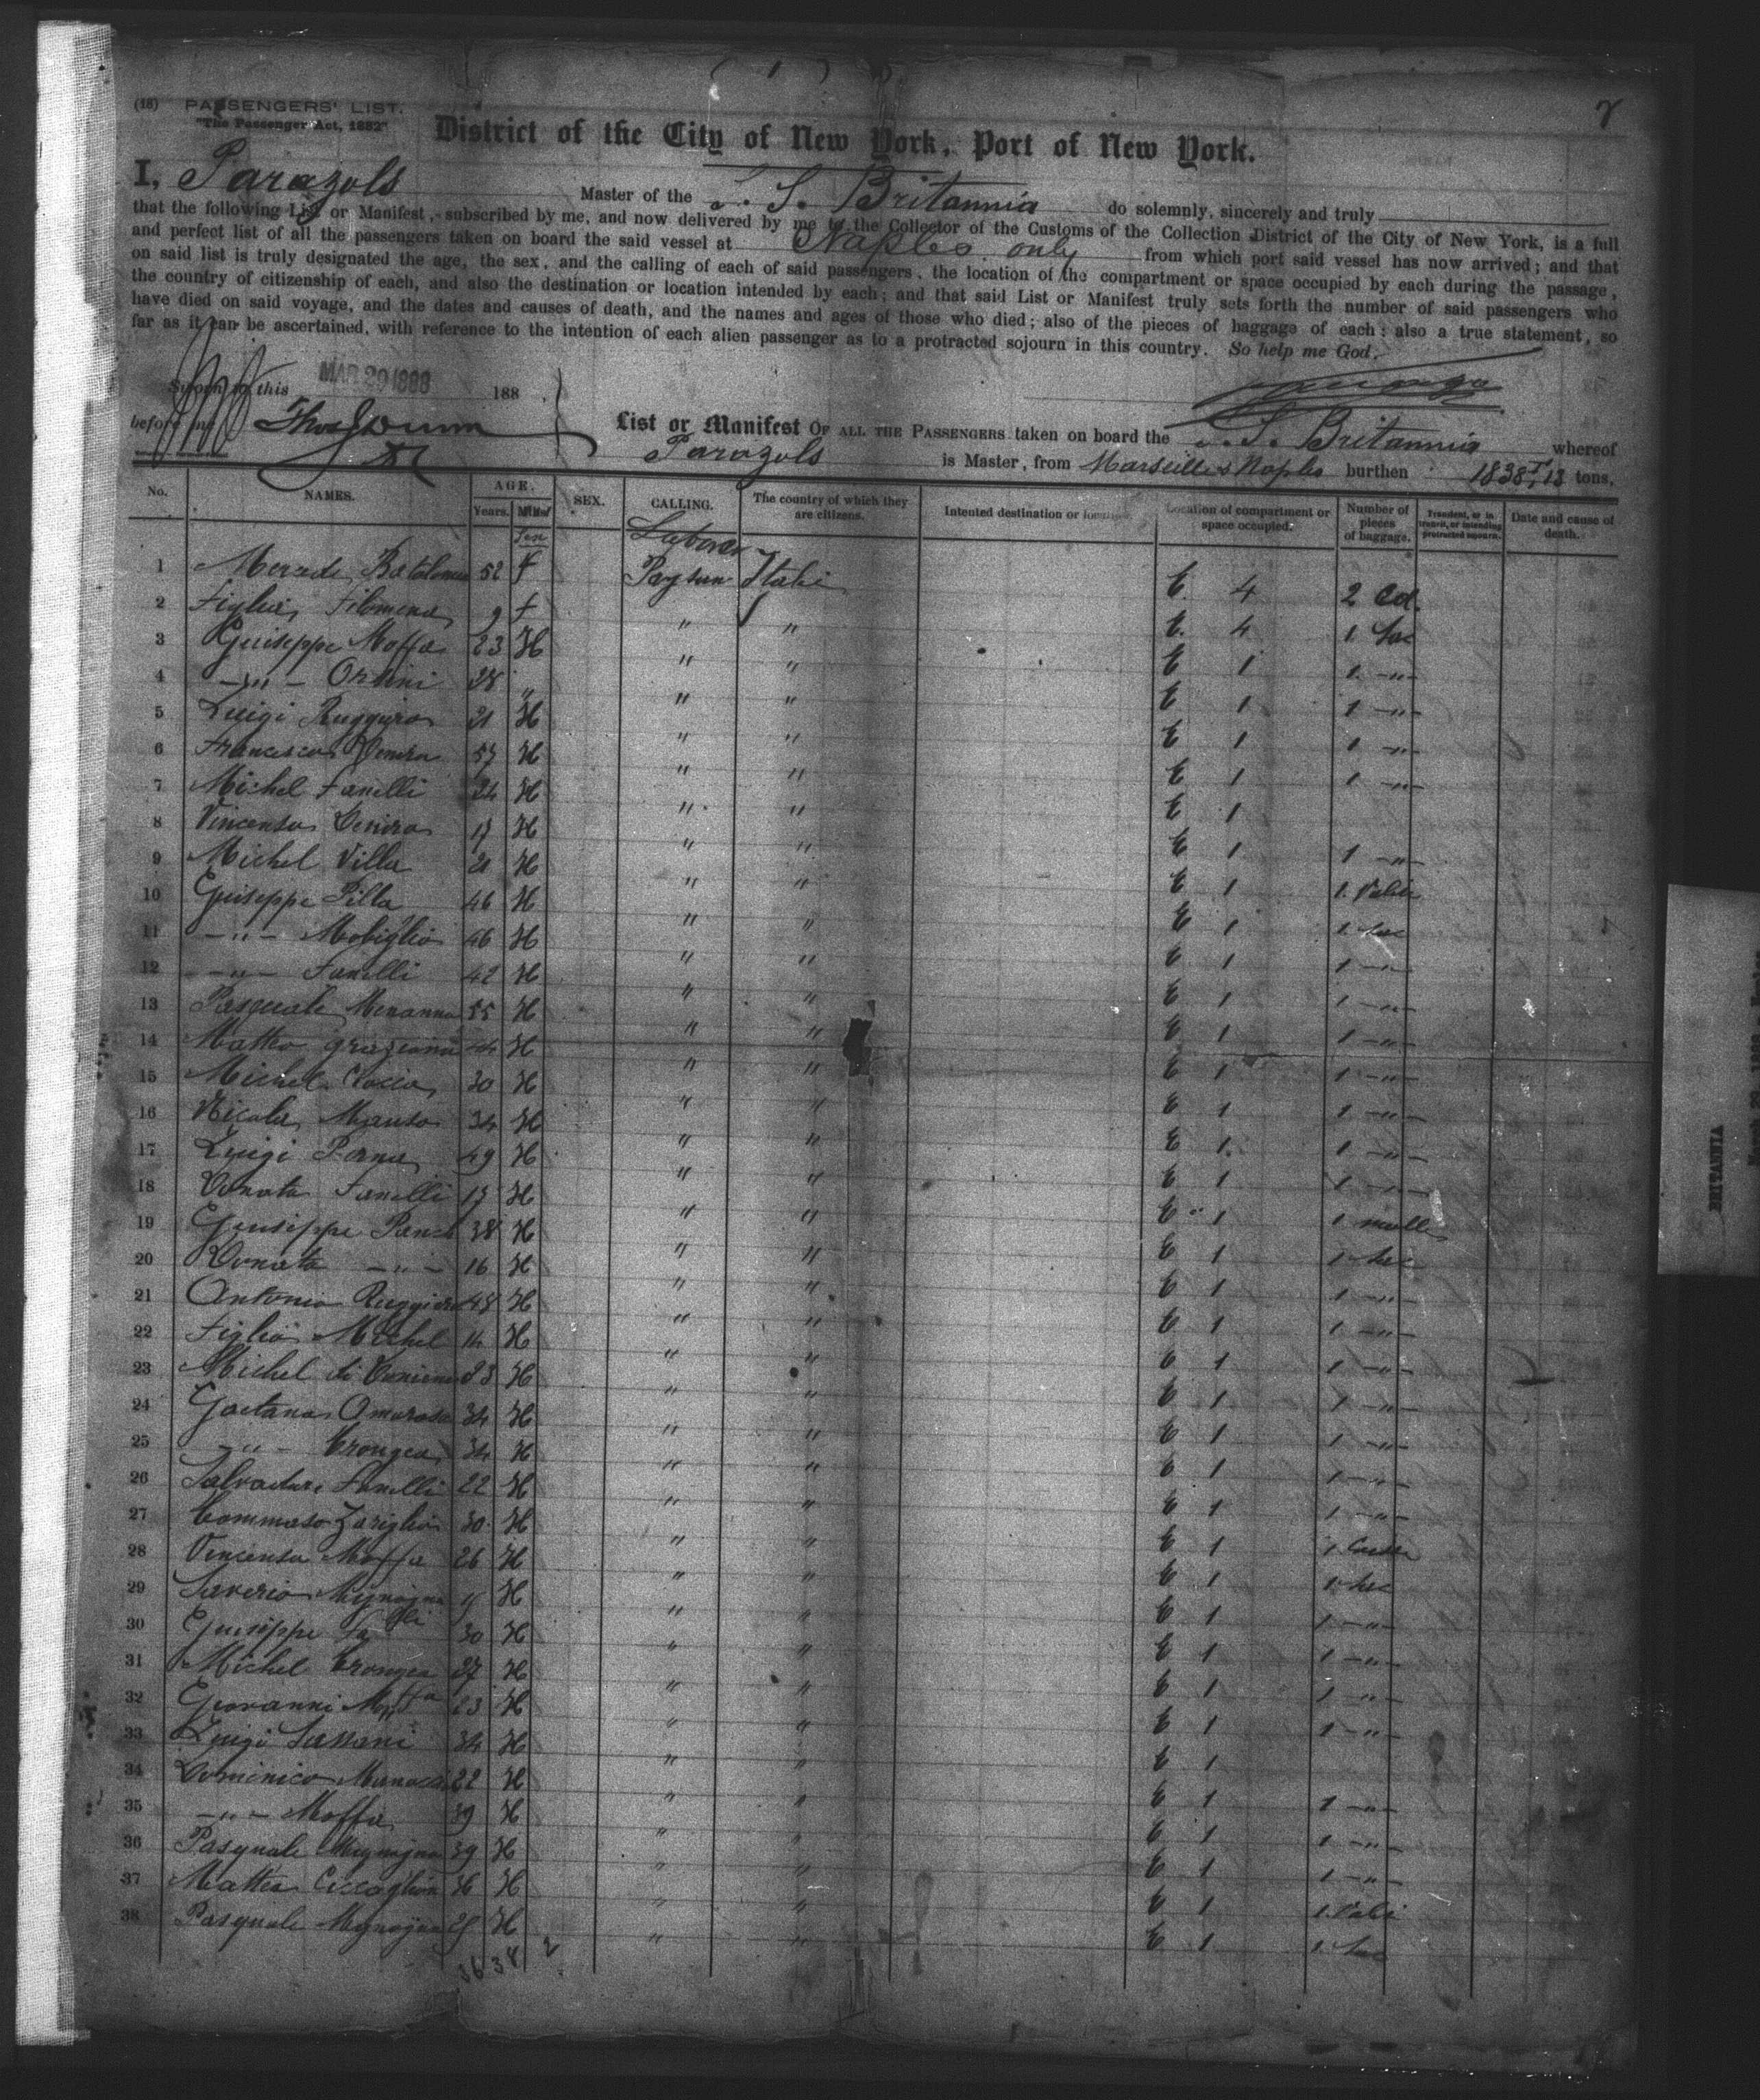 ( 1 )
7
(18) PASSENGERS' LIST.
"The Passenger Act, 1882"
District of the City of New York, Port of New York.
I, Parazols Master of the S. S. Britannia do solemnly, sincerely and truly
that the following List or Manifest, subscribed by me, and now delivered by me to the Collector of the Customs of the Collection District of the City of New York, is a full
and perfect list of all the passengers taken on board the said vessel at Naples only from which port said vessel has now arrived; and that
on said list is truly designated the age, the sex, and the calling of each of said passengers, the location of the compartment or space occupied by each during the passage,
the country of citizenship of each, and also the destination or location intended by each; and that said List or Manifest truly sets forth the number of said passengers who
have died on said voyage, and the dates and causes of death, and the names and ages of those who died; also of the pieces of baggage of each; also a true statement, so
far as it can be ascertained, with reference to the intention of each alien passenger as to a protracted sojourn in this country. So help me God.
Sworn to this MAR 29 1888 188
before me Thos J Dunn
List or Manifest OF ALL THE PASSENGERS taken on board the S. S. Britannia whereof
Parazols is Master, from Marseille & Naples burthen 1838 T 13 tons.
No. NAMES. AGE. Years. Sex SEX. CALLING. The country of which they are citizens. Intended destination or Location of compartment or space occupied. Number of pieces of baggage. Transient, or in transit, or intending protracted sojourn. Date and cause of death.
Laborer
1 52 f Paysan Itali E. 4 2 Col.
2 Figlia Filomena 9 f " " E. 4 1 Sac
3 Guiseppe Moffa 23 H " " E 1 1 -"-
4 -"- Orsini 28 " " " E 1 1 -"-
5 Luigi Ruggiero 21 H " " E 1 1 -"-
6 Francesco 57 H " " E 1 1 -"-
7 Michel Fanelli 24 H " " E 1
8 Vincenso 17 H " " E 1 1 -"-
9 Michel Villa 21 H " " E 1 1 Valis
10 Guiseppe Pilla 46 H " " E 1 1 Sac
11 -"- Mobiglio 46 H " " E 1 1 -"-
12 -"- Fanelli 42 H " " E 1 1 -"-
13 Pasquale Menanna 55 H " " E 1 1 -"-
14 Matteo Graziano 44 H " " E 1 1 -"-
15 Michel 30 H " " E 1 1 -"-
16 Nicola Manso 34 H " " E 1 1 -"-
17 Luigi Perna 49 H " " E 1 1 -"-
18 Donato Fanelli 17 H " " E 1 1 malle
19 Guiseppe 38 H " " E 1 1 Sac
20 Donato -"- 16 H " " E 1 1 -"-
21 Antonio Ruggiero 48 H " " E 1 1 -"-
22 Figlio Michel 14 H " " E 1 1 -"-
23 Michel di 23 H " " E 1 1 -"-
24 Gaetano Amoroso 34 H " " E 1 1 -"-
25 -"- Crongea 34 H " " E 1 1 -"-
26 Salvature Fanelli 22 H " " E 1 1 -"-
27 Tommaso Zariglio 30 H " " E 1 1 Caisse
28 Vincenso Moffa 26 H " " E 1 1 Sac
29 Saverio Mignogna H " " E 1 1 -"-
30 Guiseppe 30 H " " E 1 1 -"-
31 Michel Crongea 27 H " " E 1 1 -"-
32 Giovanni Moffa 23 H " " E 1 1 -"-
33 Luigi Sassani 34 H " " E 1
34 Dominico 22 H " " E 1 1 -"-
35 -"- Moffa 39 H " " E 1 1 -"-
36 Pasquale Mignogna 39 H " " E 1 1 -"-
37 Matteo Ciccaglione 36 H " " E 1 1 Vali
38 Pasquale Mignogna H " " E 1 1 Sac
36 38 2
BRITANIA